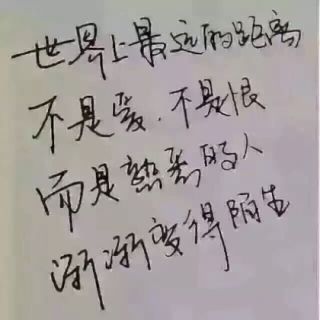 世界上最远的距离
不是爱.不是恨
而是熟悉的人
渐渐变得陌生